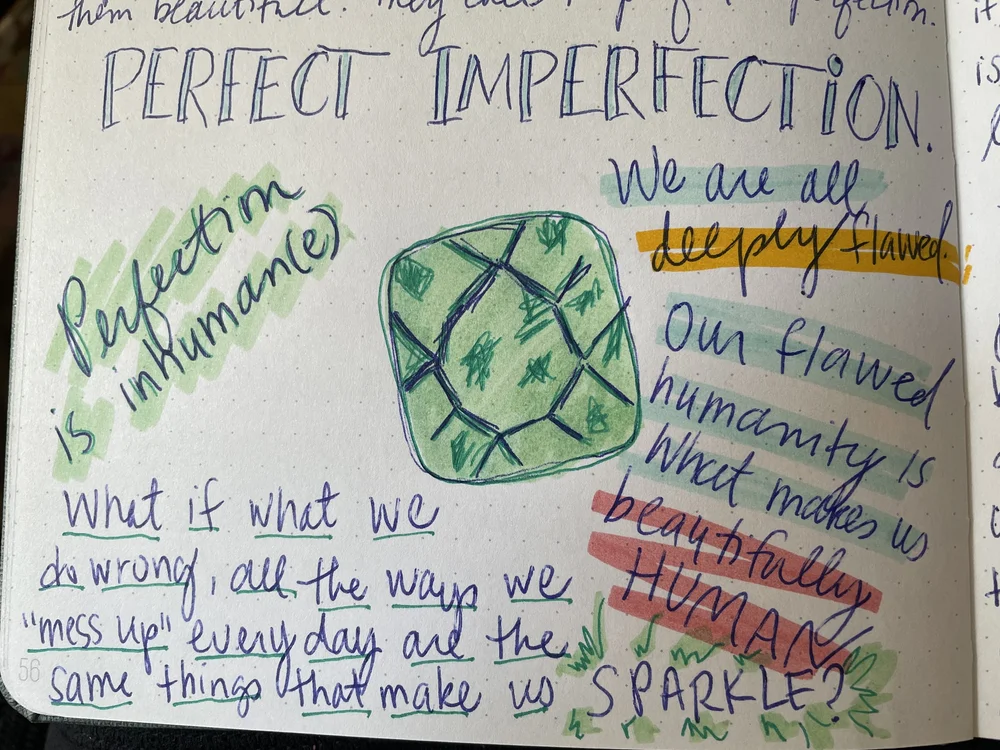 them beautiful. They
PERFECT IMPERFECTION.
Perfection
is inhuman(e)
We are all
deeply flawed.
Our flawed
humanity is
what makes us
beautifully
HUMAN
What if what we
do wrong, all the ways we
"mess up" every day are the
same things that make us SPARKLE?
56
it
is